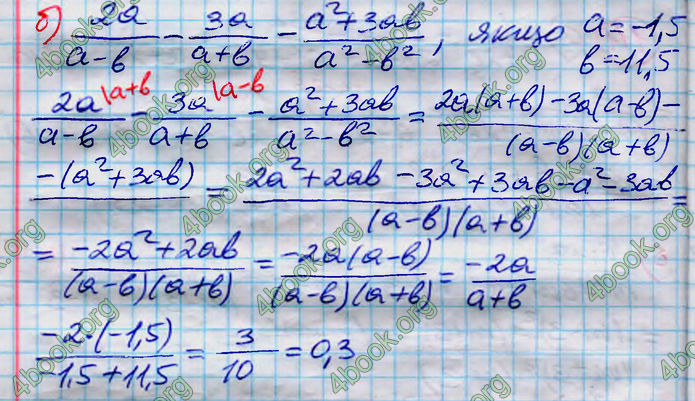 б) 2a/(a-в) - 3a/(a+в) - (a²+3aв)/(a²-в²), якщо a=-1,5
в=11,5
2a\a+в/(a-в) - 3a\a-в/(a+в) - (a²+3aв)/(a²-в²) = 2a(a+в)-3a(a-в)-/(a-в)(a+в)
-(a²+3aв) = (2a²+2aв-3a²+3aв-a²-3aв)/((a-в)(a+в)) =
= (-2a²+2aв)/((a-в)(a+в)) = -2a(a-в)/((a-в)(a+в)) = -2a/(a+в)
-2·(-1,5)/(-1,5+11,5) = 3/10 = 0,3
4book.org